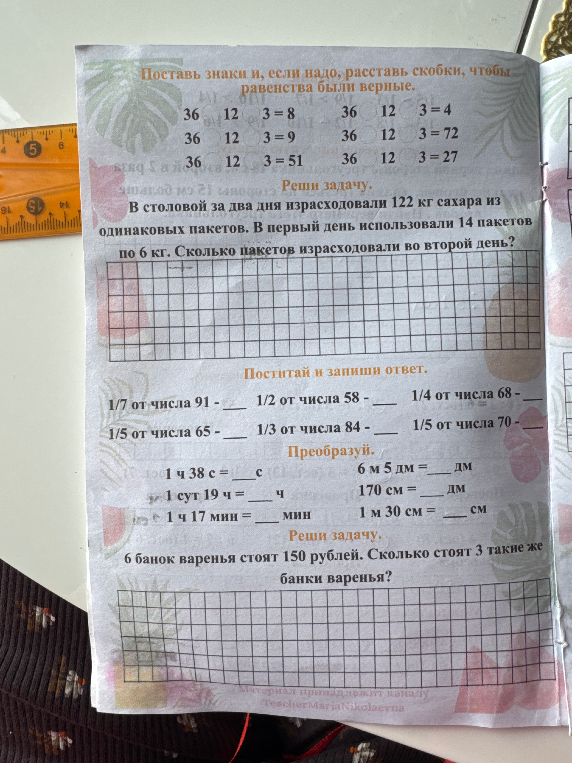 Поставь знаки и, если надо, расставь скобки, чтобы
равенства были верные.
36 12 3 = 8 36 12 3 = 4
36 12 3 = 9 36 12 3 = 72
36 12 3 = 51 36 12 3 = 27
Реши задачу.
В столовой за два дня израсходовали 122 кг сахара из
одинаковых пакетов. В первый день использовали 14 пакетов
по 6 кг. Сколько пакетов израсходовали во второй день?
Поститай и запиши ответ.
1/7 от числа 91 - ___ 1/2 от числа 58 - ___ 1/4 от числа 68 - ___
1/5 от числа 65 - ___ 1/3 от числа 84 - ___ 1/5 от числа 70 - ___
Преобразуй.
1 ч 38 с = ___ с 6 м 5 дм = ___ дм
1 сут 19 ч = ___ ч 170 см = ___ дм
1 ч 17 мин = ___ мин 1 м 30 см = ___ см
Реши задачу.
6 банок варенья стоят 150 рублей. Сколько стоят 3 такие же
банки варенья?
Материал принадлежит каналу
TeacherMariaNikolaevna
4 5 6
15